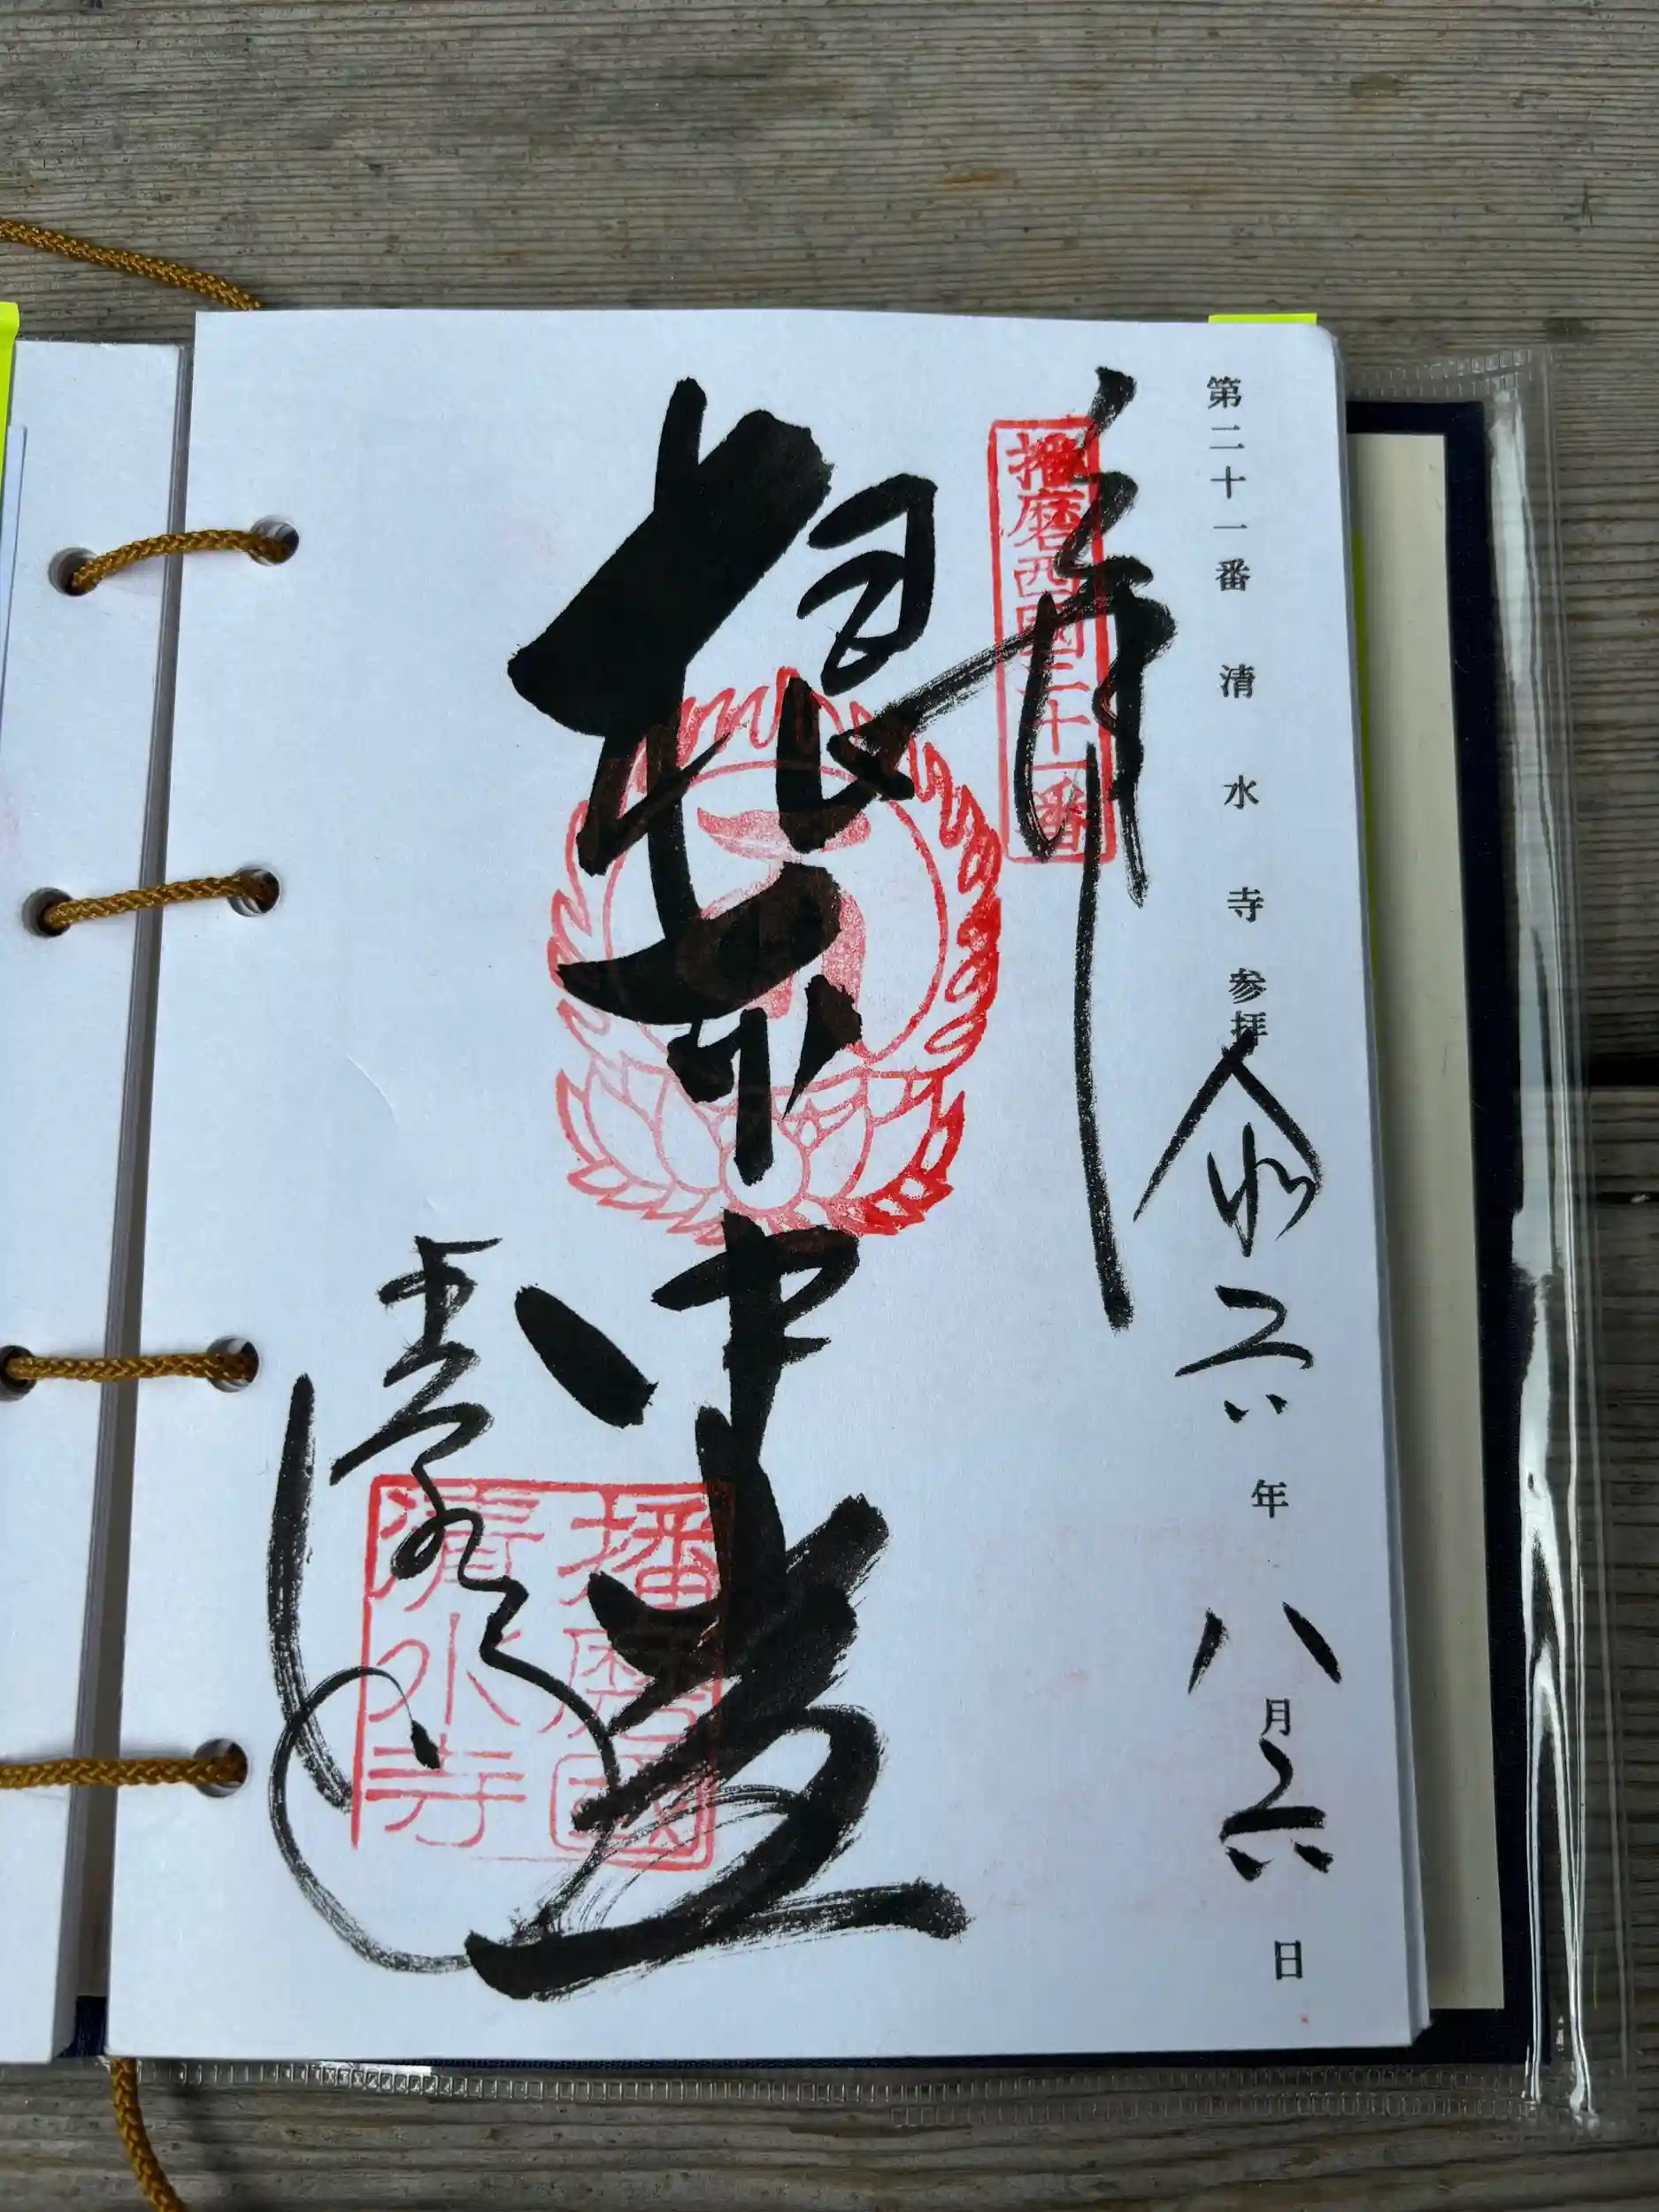 第二十一番 清水寺 参拝 令和六年 八月六日
奉拝
播磨西国二十一番
根本中堂
清水寺
播磨國清水寺